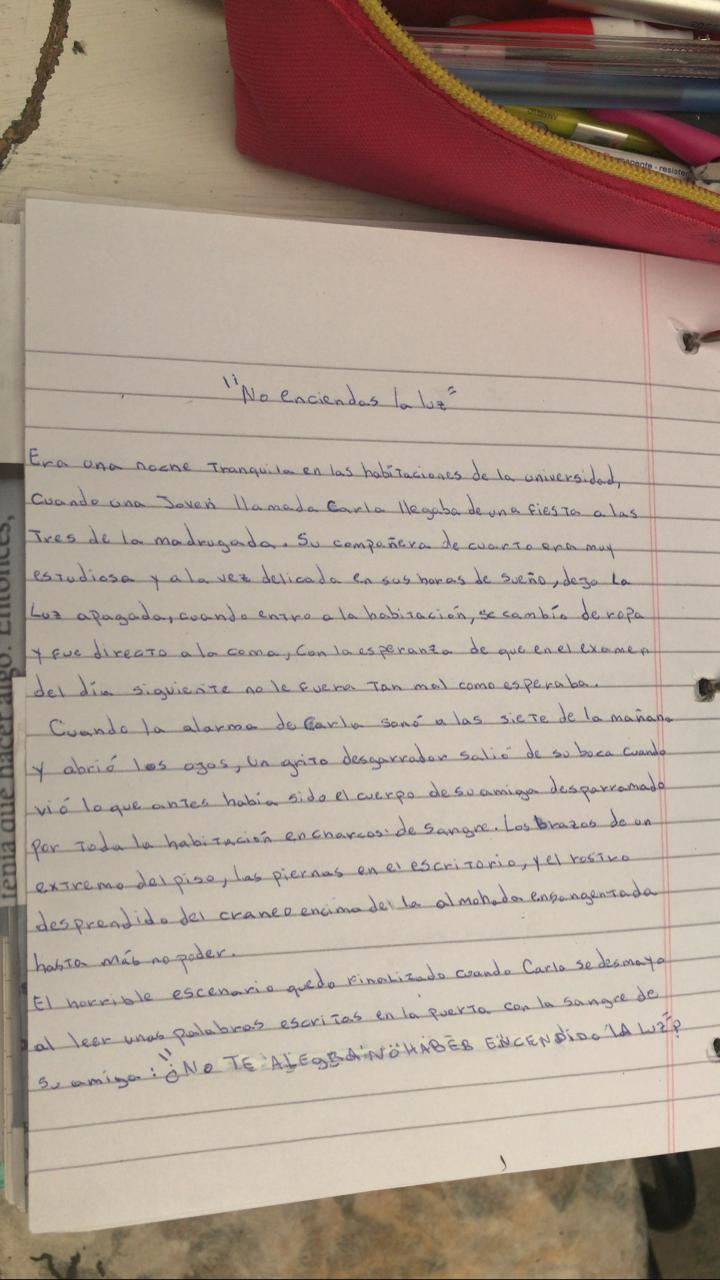 "No enciendas la luz"
Era una noche Tranquila en las habitaciones de la universidad,
Cuando una Joven llamada Carla llegaba de una fiesta a las
Tres de la madrugada. Su compañera de cuarto era muy
estudiosa y a la vez delicada en sus horas de sueño, dejo la
Luz apagada, cuando entro a la habitación, se cambio de ropa
y fue directo a la cama, Con la esperanza de que en el examen
del día siguiente no le fuera Tan mal como esperaba.
Cuando la alarma de Carla sonó a las siete de la mañana
y abrió los ojos, Un grito desgarrador salió de su boca cuando
vió lo que antes había sido el cuerpo de su amiga desparramado
por Toda la habitación en charcos de Sangre. Los brazos de un
extremo del piso, las piernas en el escritorio, y el rostro
desprendido del craneo encima de la almohada ensangentada
hasta más no poder.
El horrible escenario quedo finalizado cuando Carla se desmayo
al leer unas palabras escritas en la puerta con la sangre de
su amiga: "¿No TE ALEGRA NO HABER ENCENDIDO LA LUZ?"
tenía que hacer algo. Entonces,